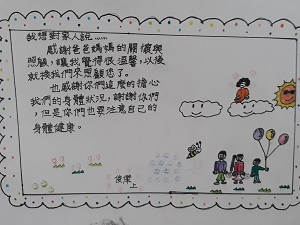 我想對家人說……
感謝爸爸媽媽的關懷與
照顧,讓我覺得很溫馨,以後
就換我們來照顧您了。
也感謝你們這麼的擔心
我們的身體狀況,謝謝你們
,但是你們也要注意自己的
身體健康。
上